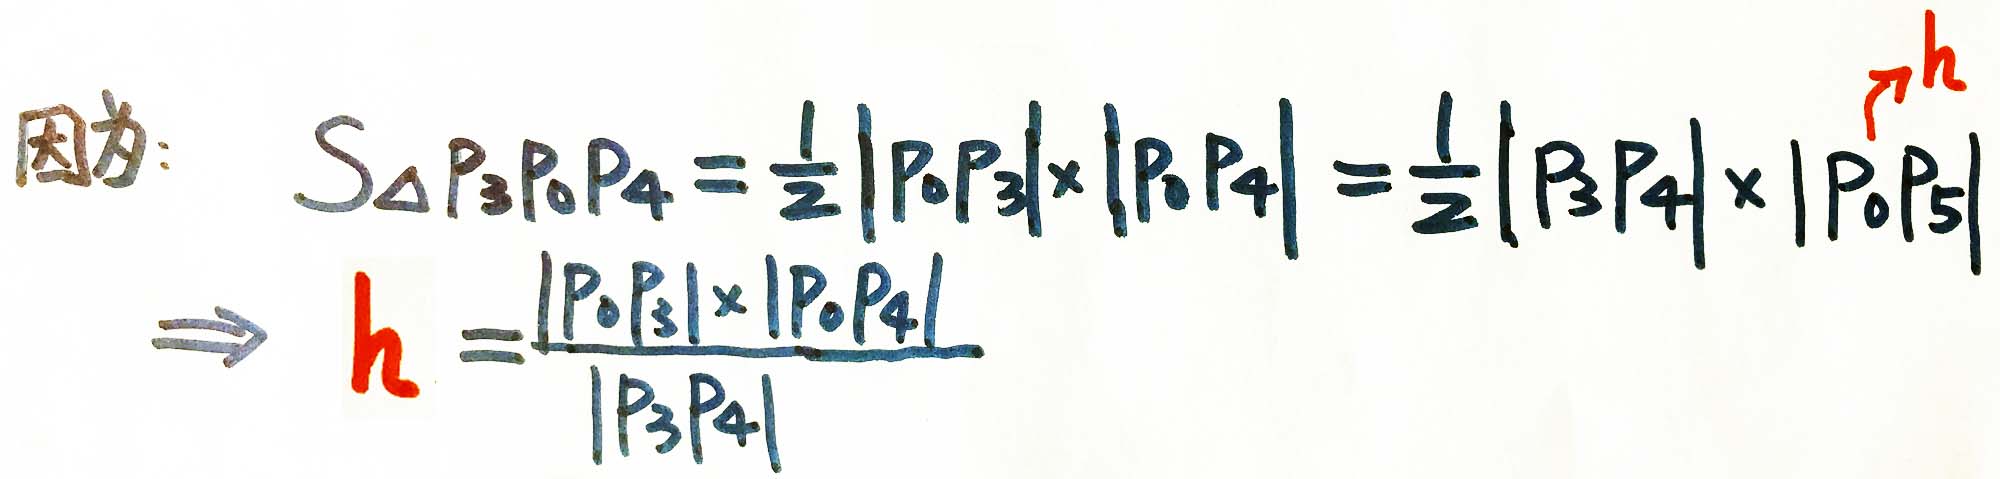 h
因为: S△P₃P₀P₄ = 1/2 |P₀P₃| × |P₀P₄| = 1/2 |P₃P₄| × |P₀P₅|
⇒ h = |P₀P₃| × |P₀P₄| / |P₃P₄|